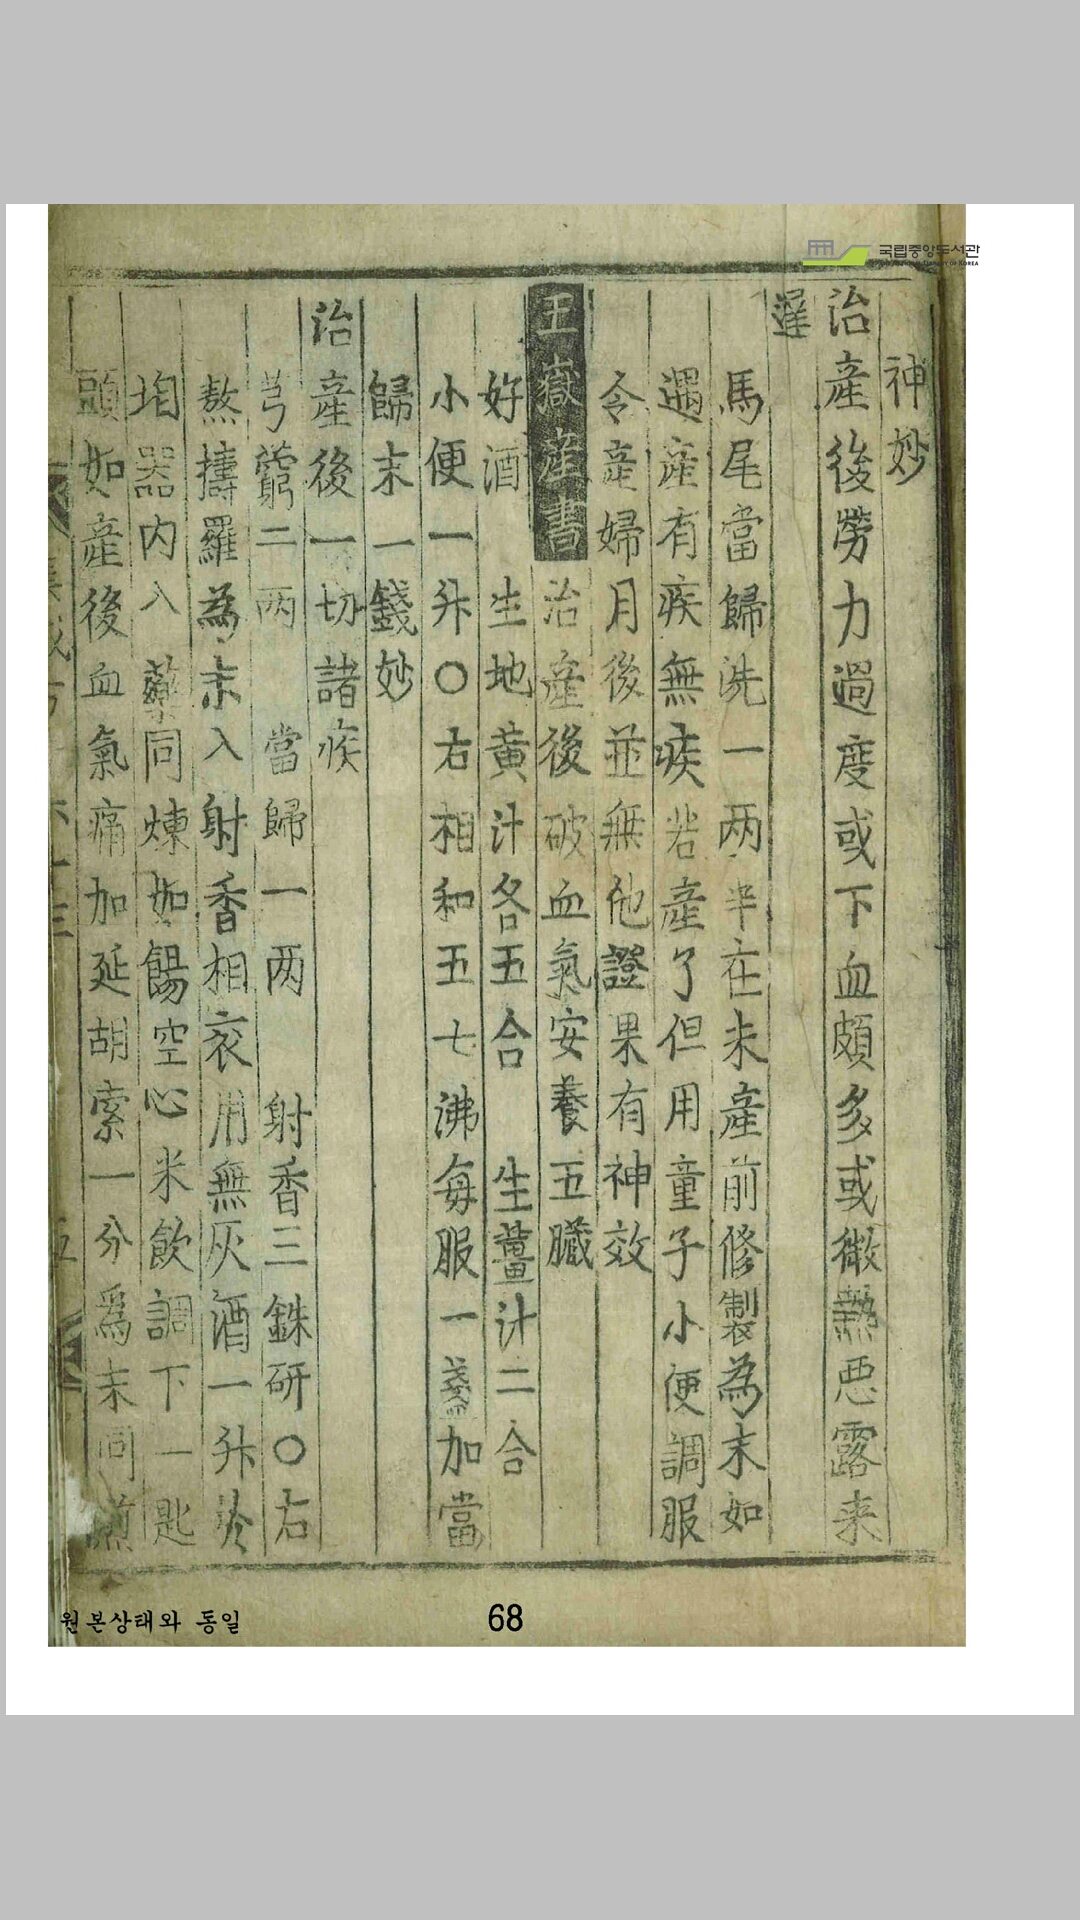 神妙
治產後勞力過度或下血頗多或微熱惡露来
遲
馬尾當歸洗一两半在未產前修製為末如
遇產有疾無疾若產了但用童子小便調服
令產婦月後並無他證果有神效
王嶽產書 治產後破血氣安養五臟
好酒 生地黄汁各五合 生薑汁二合
小便一升〇右相和五七沸每服一盞加當
歸末一錢妙
治產後一切諸疾
芎藭二两 當歸一两 射香三銖研〇右
熬擣羅為末入射香相衣用無灰酒一升於
垍器内入藥同煉如餳空心米飲調下一匙
頭如產後血氣痛加延胡索一分爲末同煎
국립중앙도서관
원본상태와 동일
68